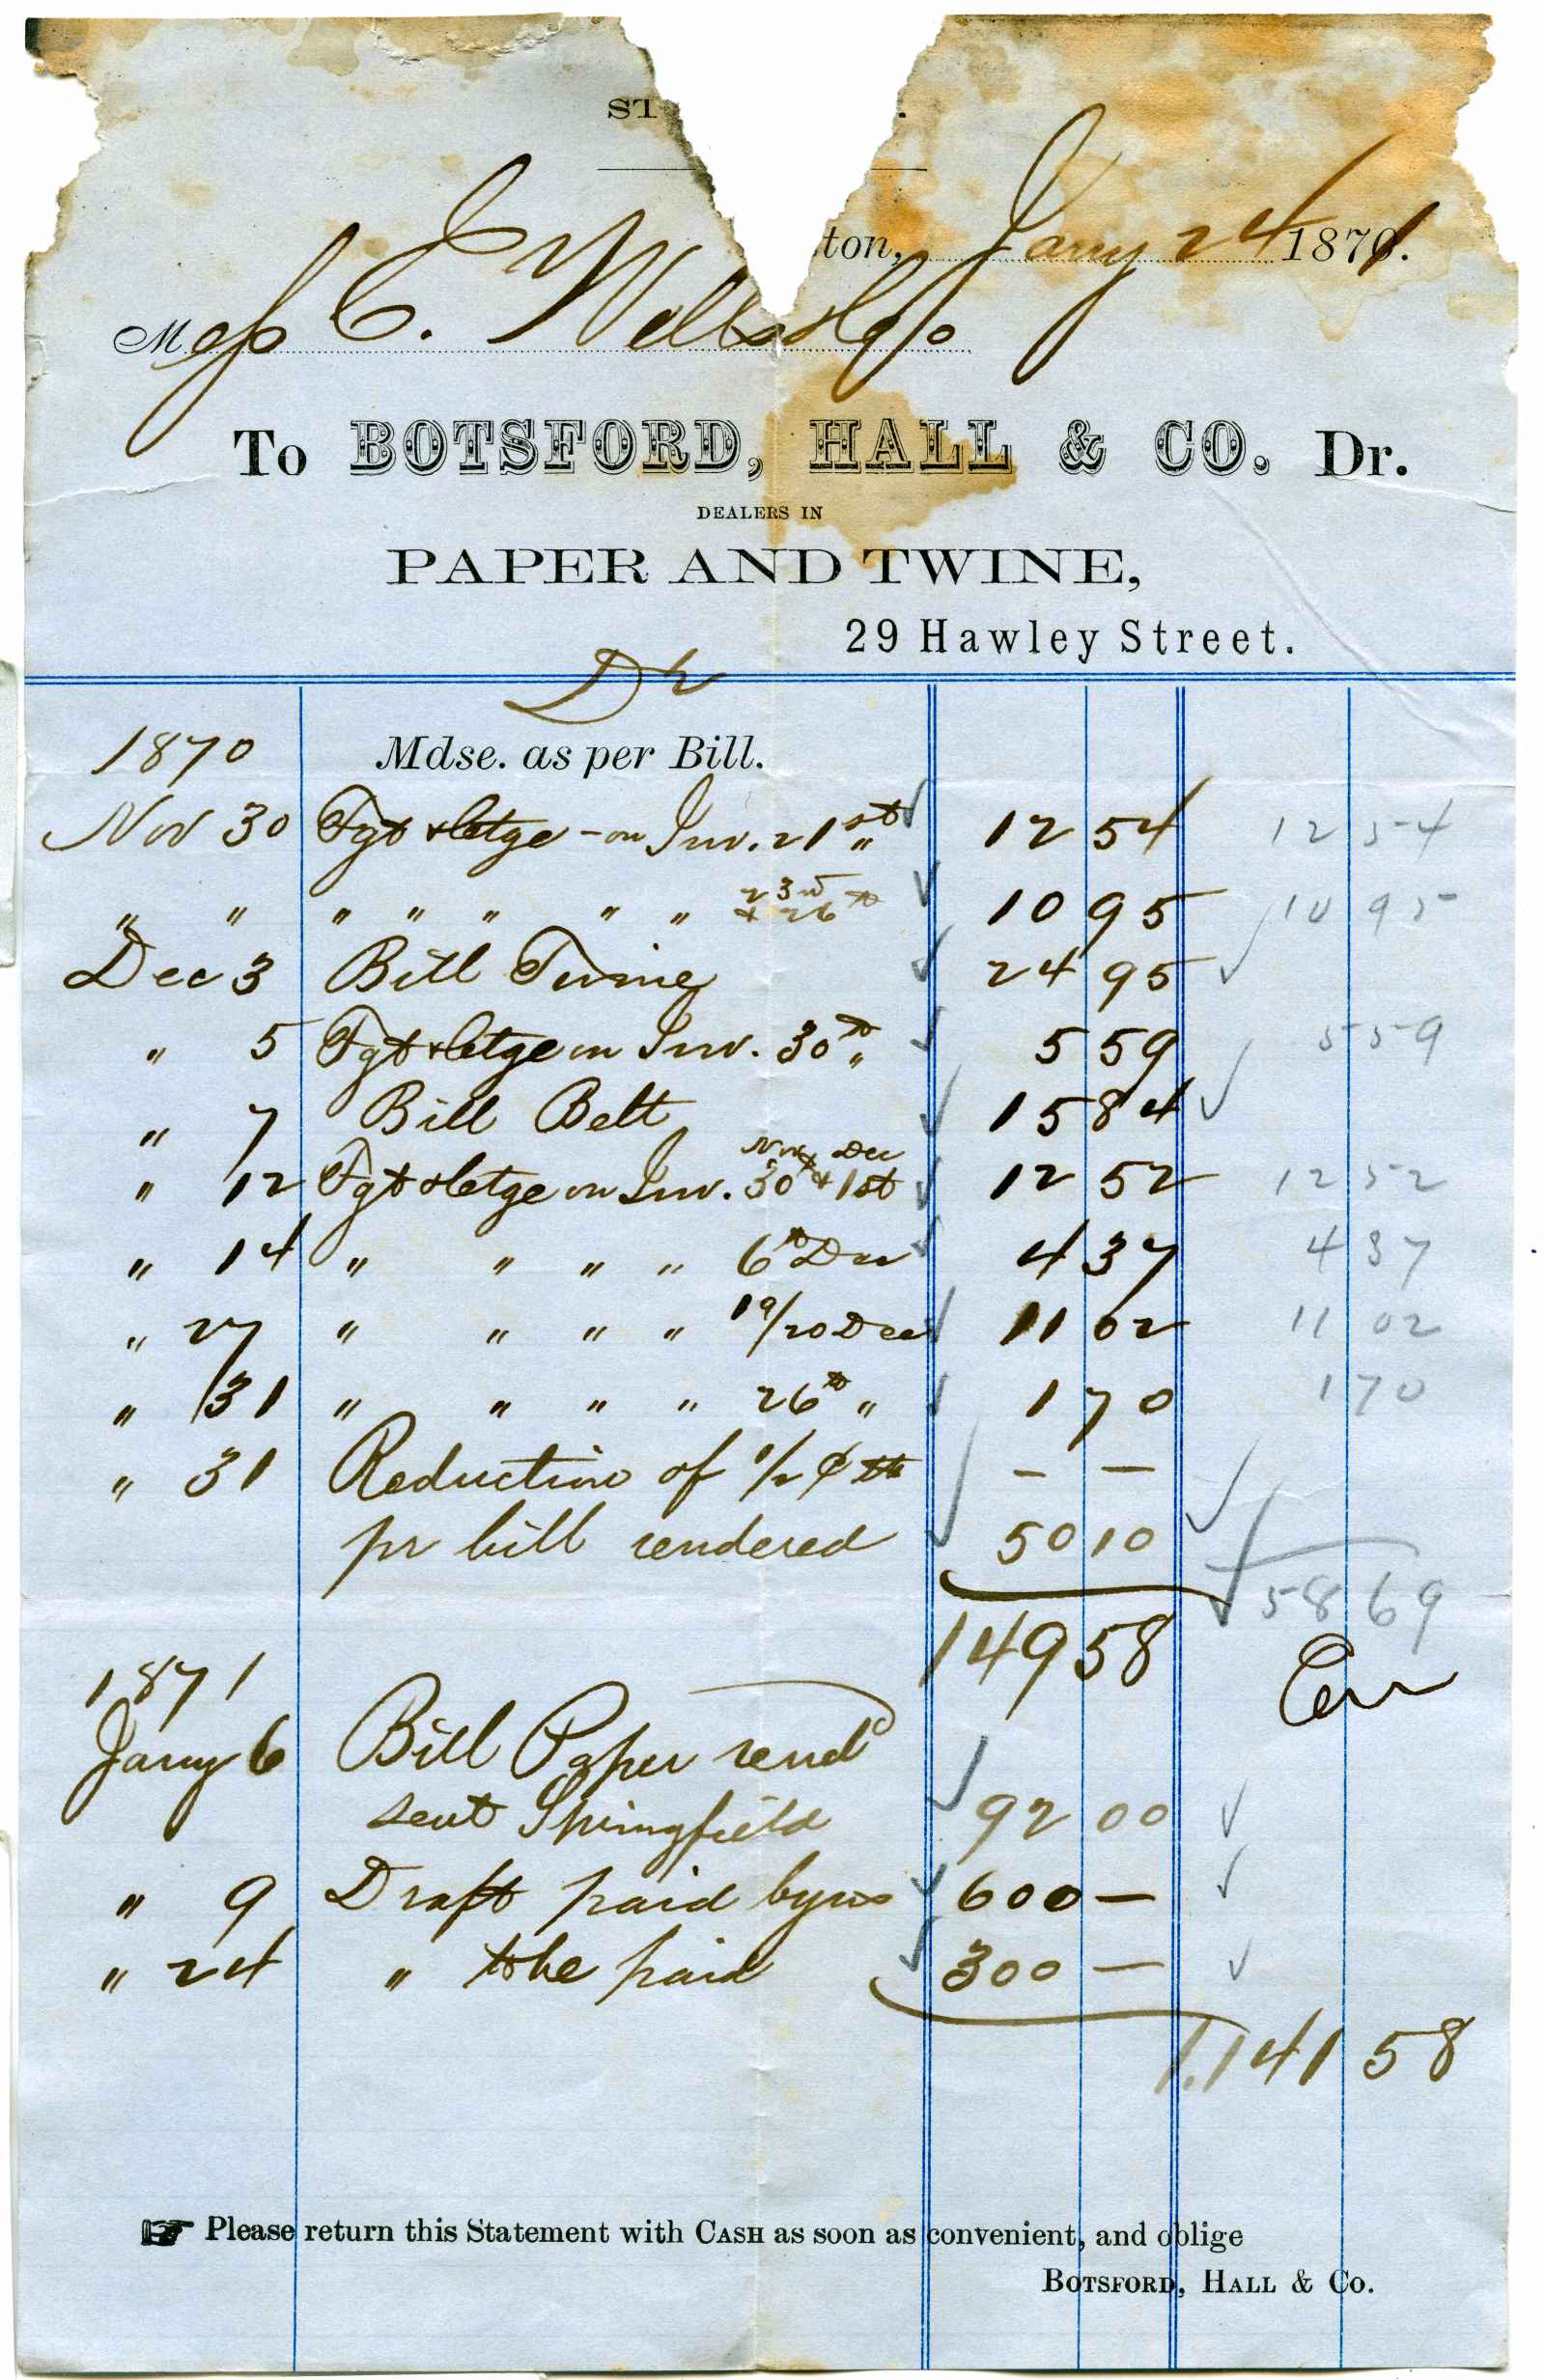 ST .
ton, Jany 24 1871.
Mess C. Wells & Co
To BOTSFORD, HALL & CO. Dr.
DEALERS IN
PAPER AND TWINE,
29 Hawley Street.
Dr
1870 Mdse. as per Bill.
Nov 30 Fgt & Ctge - on Inv. 21st " 12 54 12 54
" " " " " " " 23rd & 26th 10 95 10 95
Dec 3 Bill Twine 24 95
" 5 Fgt & Ctge on Inv. 30th " 5 59 5 59
" 7 Bill Belt 15 84
" 12 Fgt & Ctge on Inv. Nov 30 & Dec 1st 12 52 12 52
" 14 " " " " 6th Dec 4 37 4 37
" 27 " " " " 19/20 Dec 11 02 11 02
" 31 " " " " 26th " 1 70 1 70
" 31 Reduction of 1/2 ¢ - -
pr bill rendered 50 10
58 69
149 58
1871
Jany 6 Bill Paper rend
sent Springfield 92 00
" 9 Draft paid by us 600 —
" 24 " to be paid 300 —
1.141 58
☞ Please return this Statement with CASH as soon as convenient, and oblige
BOTSFORD, HALL & CO.